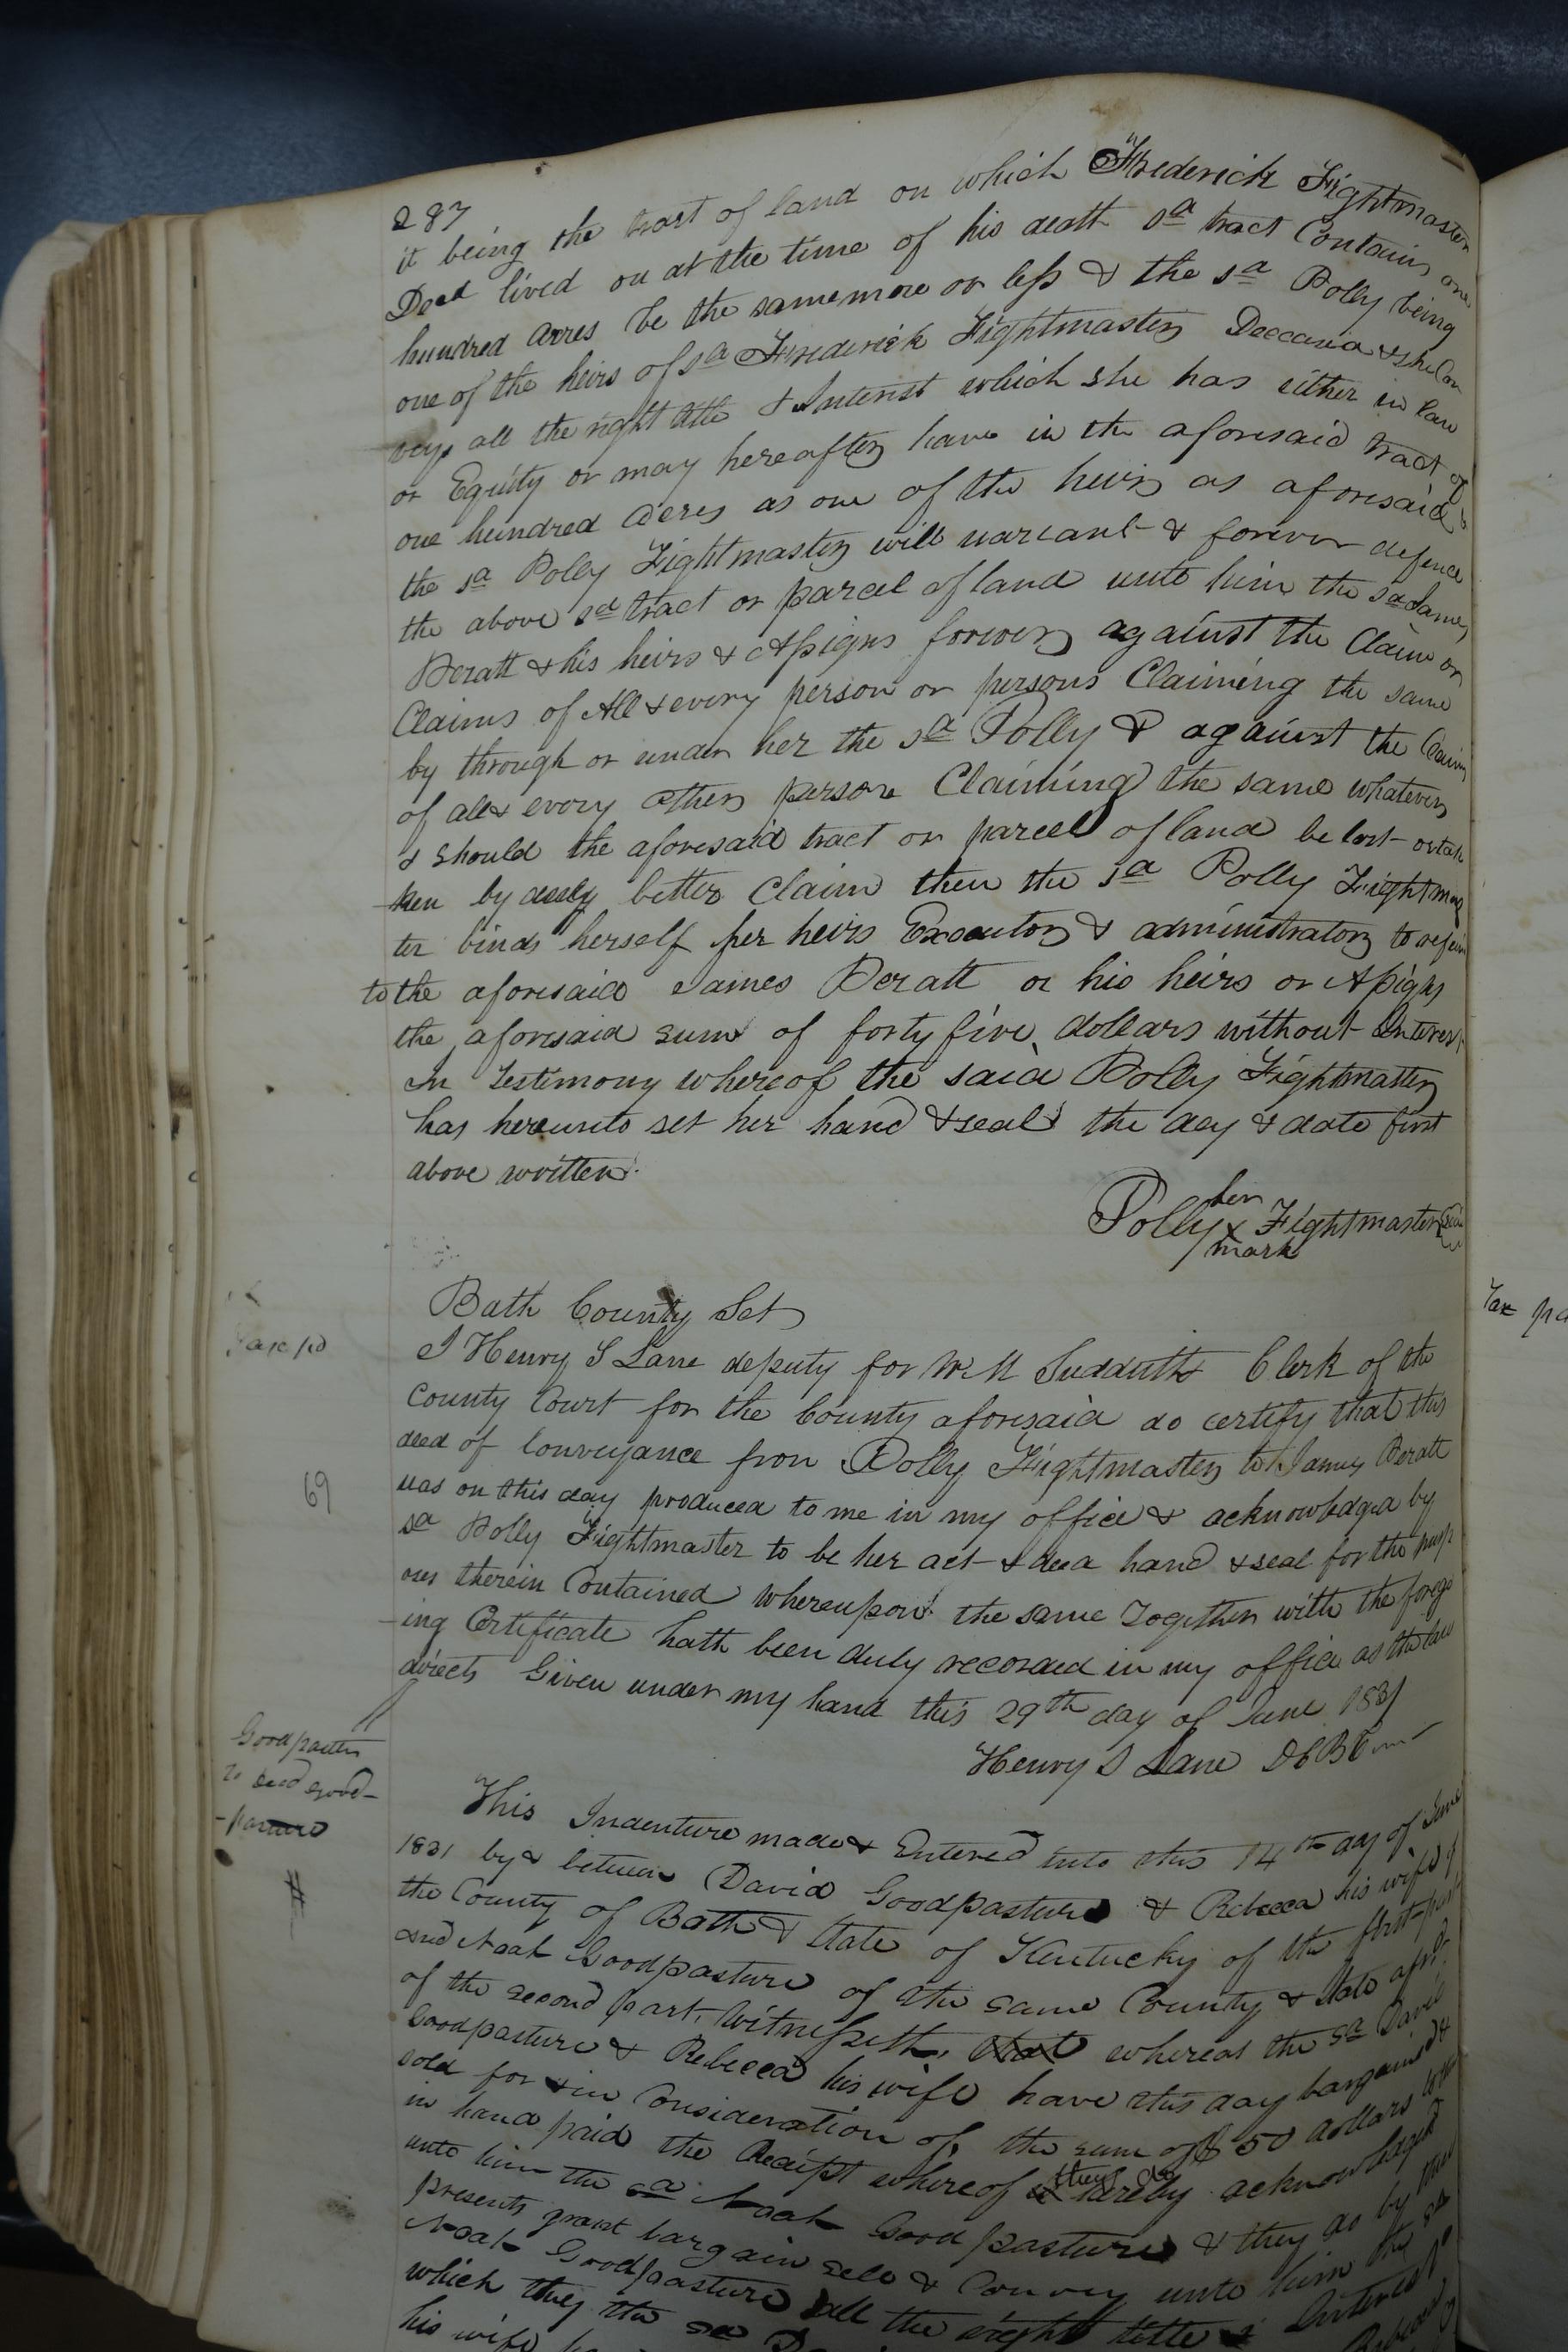 287
it being the tract of land on which Frederick Fightmaster
Decd lived on at the time of his death sd tract Contains one
hundred acres be the same more or less & the sd Polly being
one of the heirs of sd Frederick Fightmaster Deceasid & she Con
veys all the right title & Interest which she has either in law
or Equity or may hereafter have in the aforesaid tract of
one hundred acres as one of the heirs as aforesaid &
the sd Polly Fightmaster will warrant & forever defend
the above sd tract or parcel of land unto him the sd James
Beratt & his heirs & Assigns forever against the Claim or
Claims of All & every person or persons Claiming the same
by through or under her the sd Polly & against the Claim
of all & every other person Claiming the same whatever
& should the aforesaid tract or parcel of land be lost or tak
ken by any better Claim then the sd Polly Fightmas
ter binds herself her heirs Executors & administrators to refund
to the aforesaid James Beratt or his heirs or Assigns
the aforesaid sum of forty five dollars without Interest
In Testimony whereof the said Polly Fightmaster
has hereunto set her hand & seal the day & date first
above written
her
Polly x Fightmaster seal
mark
Bath County Set
Tax pd
I Henry S Lane deputy for W M Sudduth Clerk of the
County Court for the County aforesaid do certify that this
deed of Conveyance from Polly Fightmaster to James Beratt
was on this day produced to me in my office & acknowledged by
69
sd Polly Fightmaster to be her act & deed hand & seal for the purp
oses therein Contained whereupon the same Together with the forego
ing Certificate hath been duly recorded in my office as the law
directs Given under my hand this 29th day of June 1831
Henry S Lane DCBC
Goodpasture
to deed Good-
-pasture
#
This Indenture made & Entered into this 14th day of June
1831 by & between David Goodpasture & Rebecca his wife of
the County of Bath & State of Kentucky of the first part
and Noah Goodpasture of the same County & State afsd
of the second part, Witnesseth, that whereas the sd David
Goodpasture & Rebecca his wife have this day bargained &
sold for & in Consideration of the sum of $50 dollars
in hand paid the Receipt whereof they do hereby acknowledged
unto him the sd Noah Goodpasture & they do by these
presents grant bargain sell & Convey unto him the sd
Noah Goodpasture all the right title & Interest
which they the sd
his wife
Tax pd